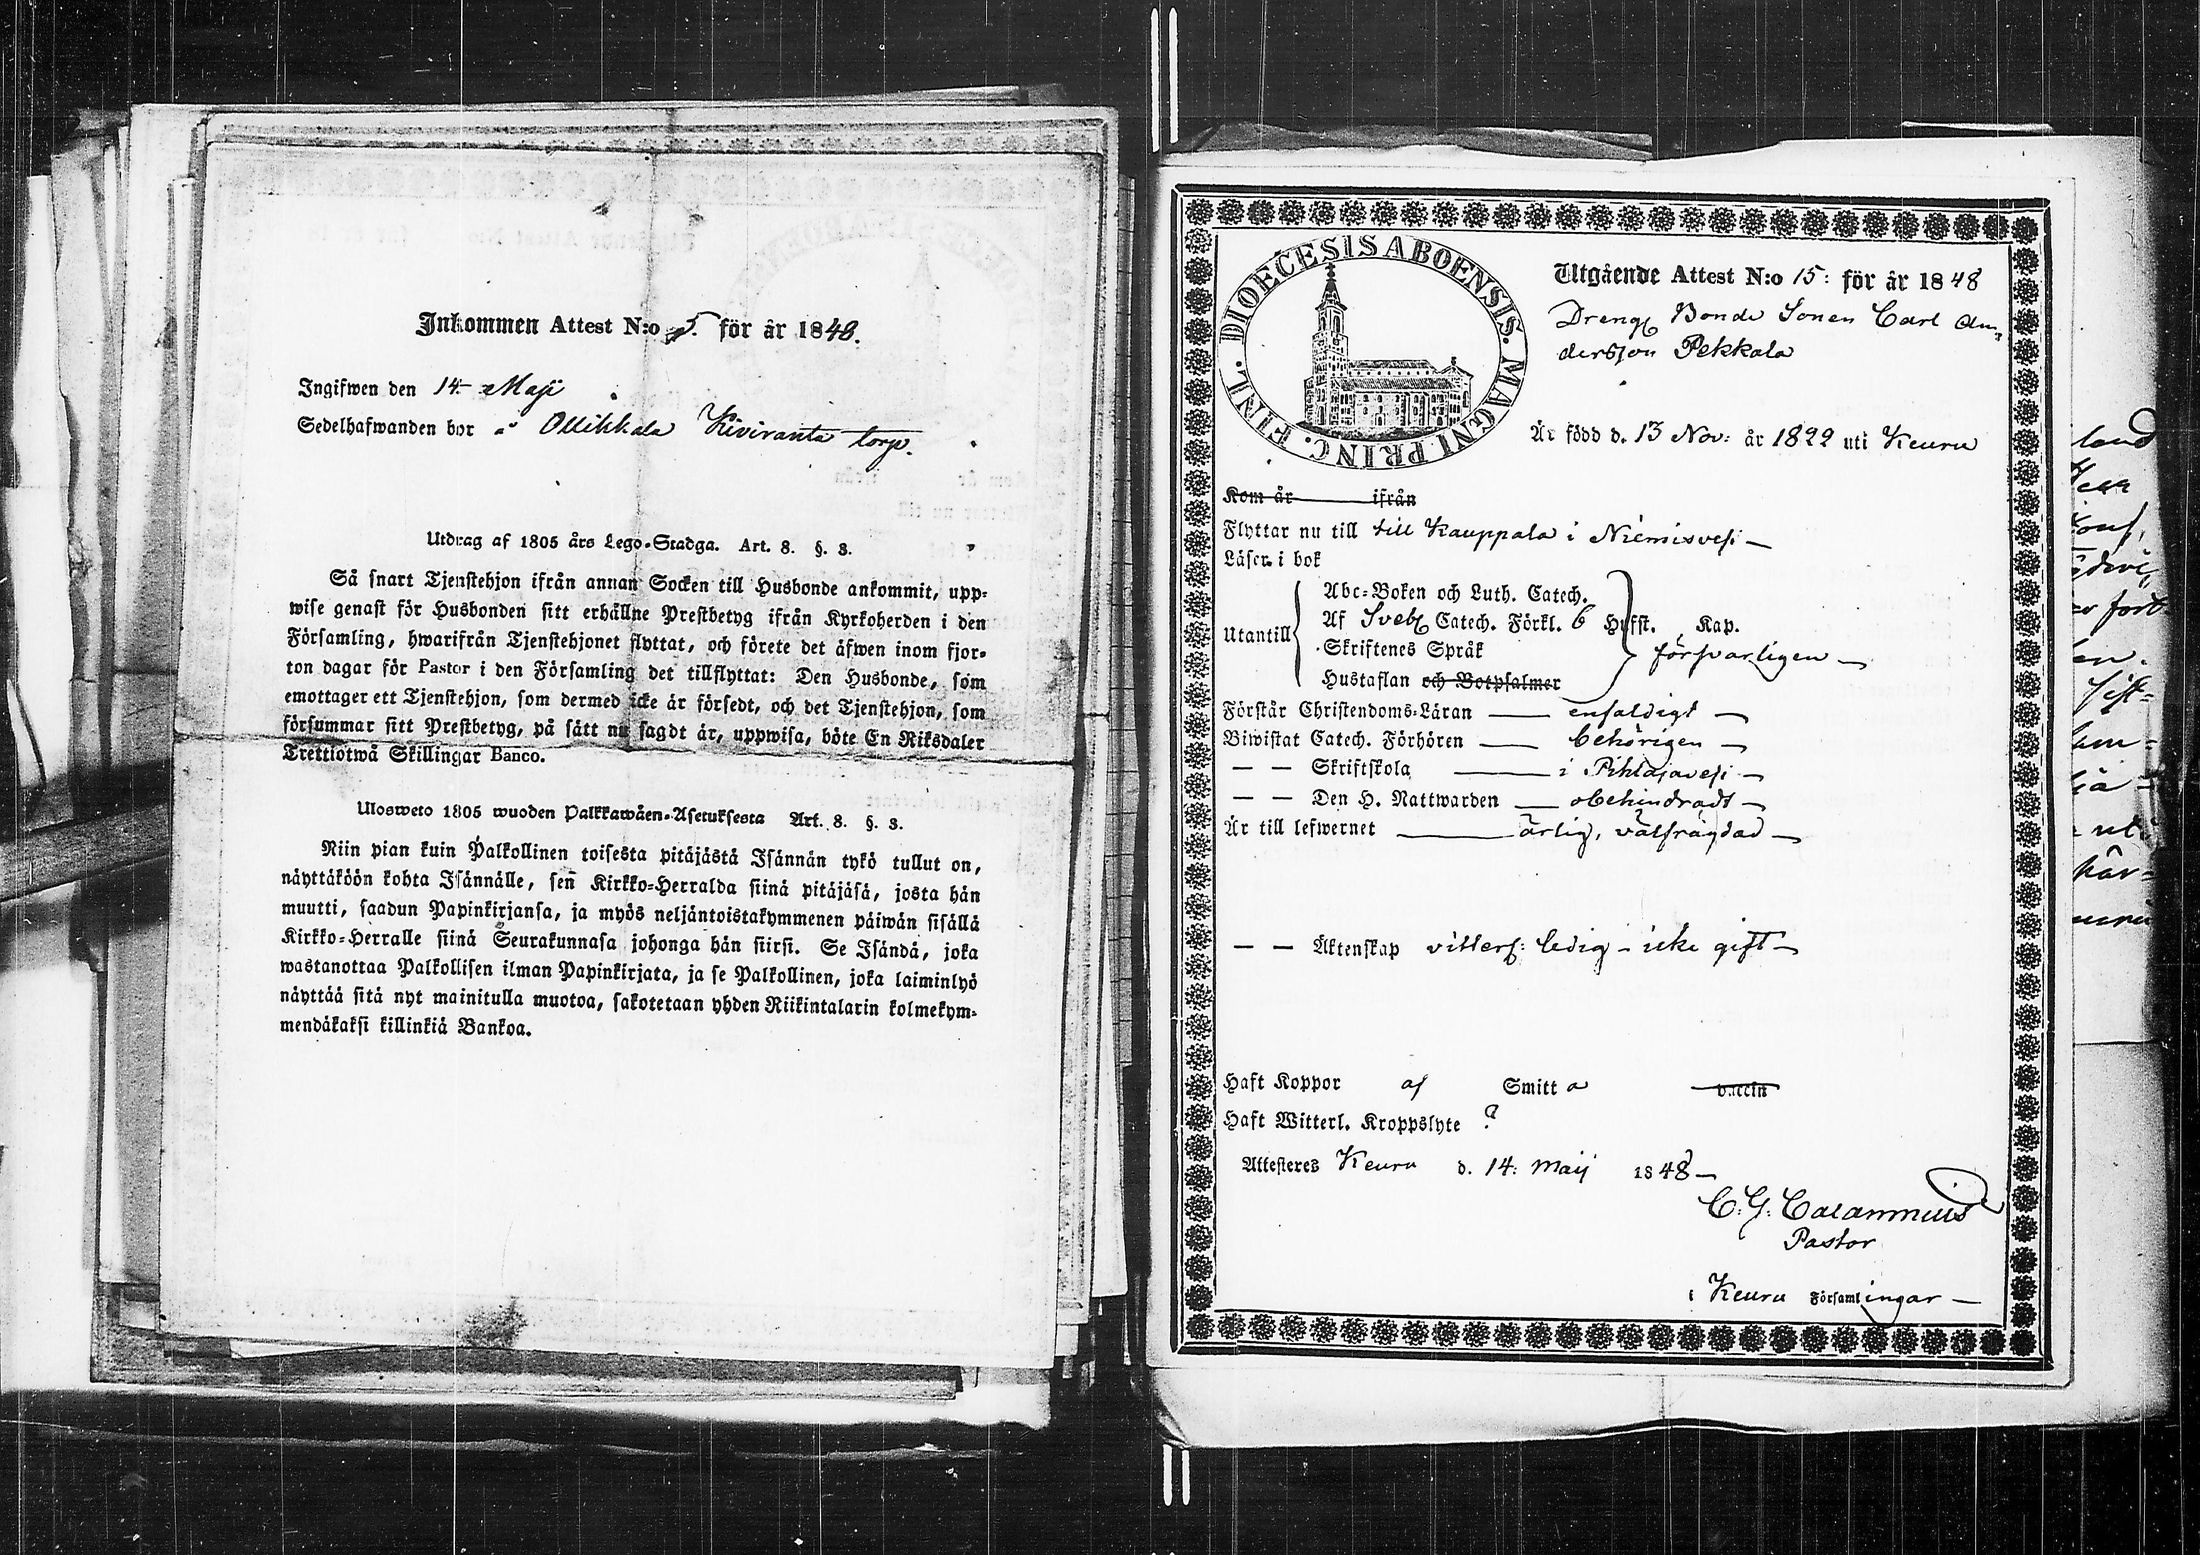 Inkommen Attest N:o 5. för år 1848.
Ingifwen den 14 Maji
Sedelhafwanden bor å Ollikkala Kiviranta torp.
Utdrag af 1805 års Lego-Stadga. Art. 8. §. 3.
Så snart Tjenstehjon ifrån annan Socken till Husbonde ankommit, upp-
wise genast för Husbonden sitt erhållne Prestbetyg ifrån Kyrkoherden i den
Församling, hwarifrån Tjenstehjonet flyttat, och förete det äfwen inom fjor-
ton dagar för Pastor i den Församling det tillflyttat: Den Husbonde, som
emottager ett Tjenstehjon, som dermed icke är försedt, och det Tjenstehjon, som
försummar sitt Prestbetyg, på sätt nu sagdt är, uppwisa, böte En Riksdaler
Trettiotwå Skillingar Banco.
Ulosweto 1805 wuoden Palkkawäen-Asetuksesta Art. 8. §. 3.
Niin pian kuin Palkollinen toisesta pitäjästä Isännän tykö tullut on,
näyttäköön kohta Isännälle, sen Kirkko-Herralda siinä pitäjäsä, josta hän
muutti, saadun Papinkirjansa, ja myös neljäntoistakymmenen päiwän sisällä
Kirkko-Herralle siinä Seurakunnasa johonga hän siirsi. Se Isändä, joka
wastanottaa Palkollisen ilman Papinkirjata, ja se Palkollinen, joka laiminlyö
näyttää sitä nyt mainitulla muotoa, sakotetaan yhden Riikintalarin kolmekym-
mendäkaksi killinkiä Bankoa.
FINL. DIOECESIS ABOENSIS. MAGNI PRINC.
Utgående Attest N:o 15: för år 1848
Dreng Bonde Sonen Carl An-
dersson Pekkala
Är född d. 13 Nov: år 1822 uti Keuru
Kom år ifrån
Flyttar nu till till Kauppala i Niemisvesi
Läser i bok
Abc-Boken och Luth. Catech.
Af Sveb Catech. Förkl. 6 Hufst. Kap.
Utantill
Skriftenes Språk
försvarligen
Hustaflan och Botpsalmer
Förstår Christendoms-Läran enfaldigt
Biwistat Catech. Förhören behörigen
— — Skriftskola i Pihlajavesi
— — Den H. Nattwarden obehindradt
Är till lefwernet ärlig, välfrägdad
— — Äktenskap vitterl: ledig - icke gift
Haft Koppor af Smitta vaccin
Haft Witterl. Kroppslyte ?
Attesteres Keuru d. 14: Maij 1848
C. G. Calamnius
Pastor
i Keuru Församlingar